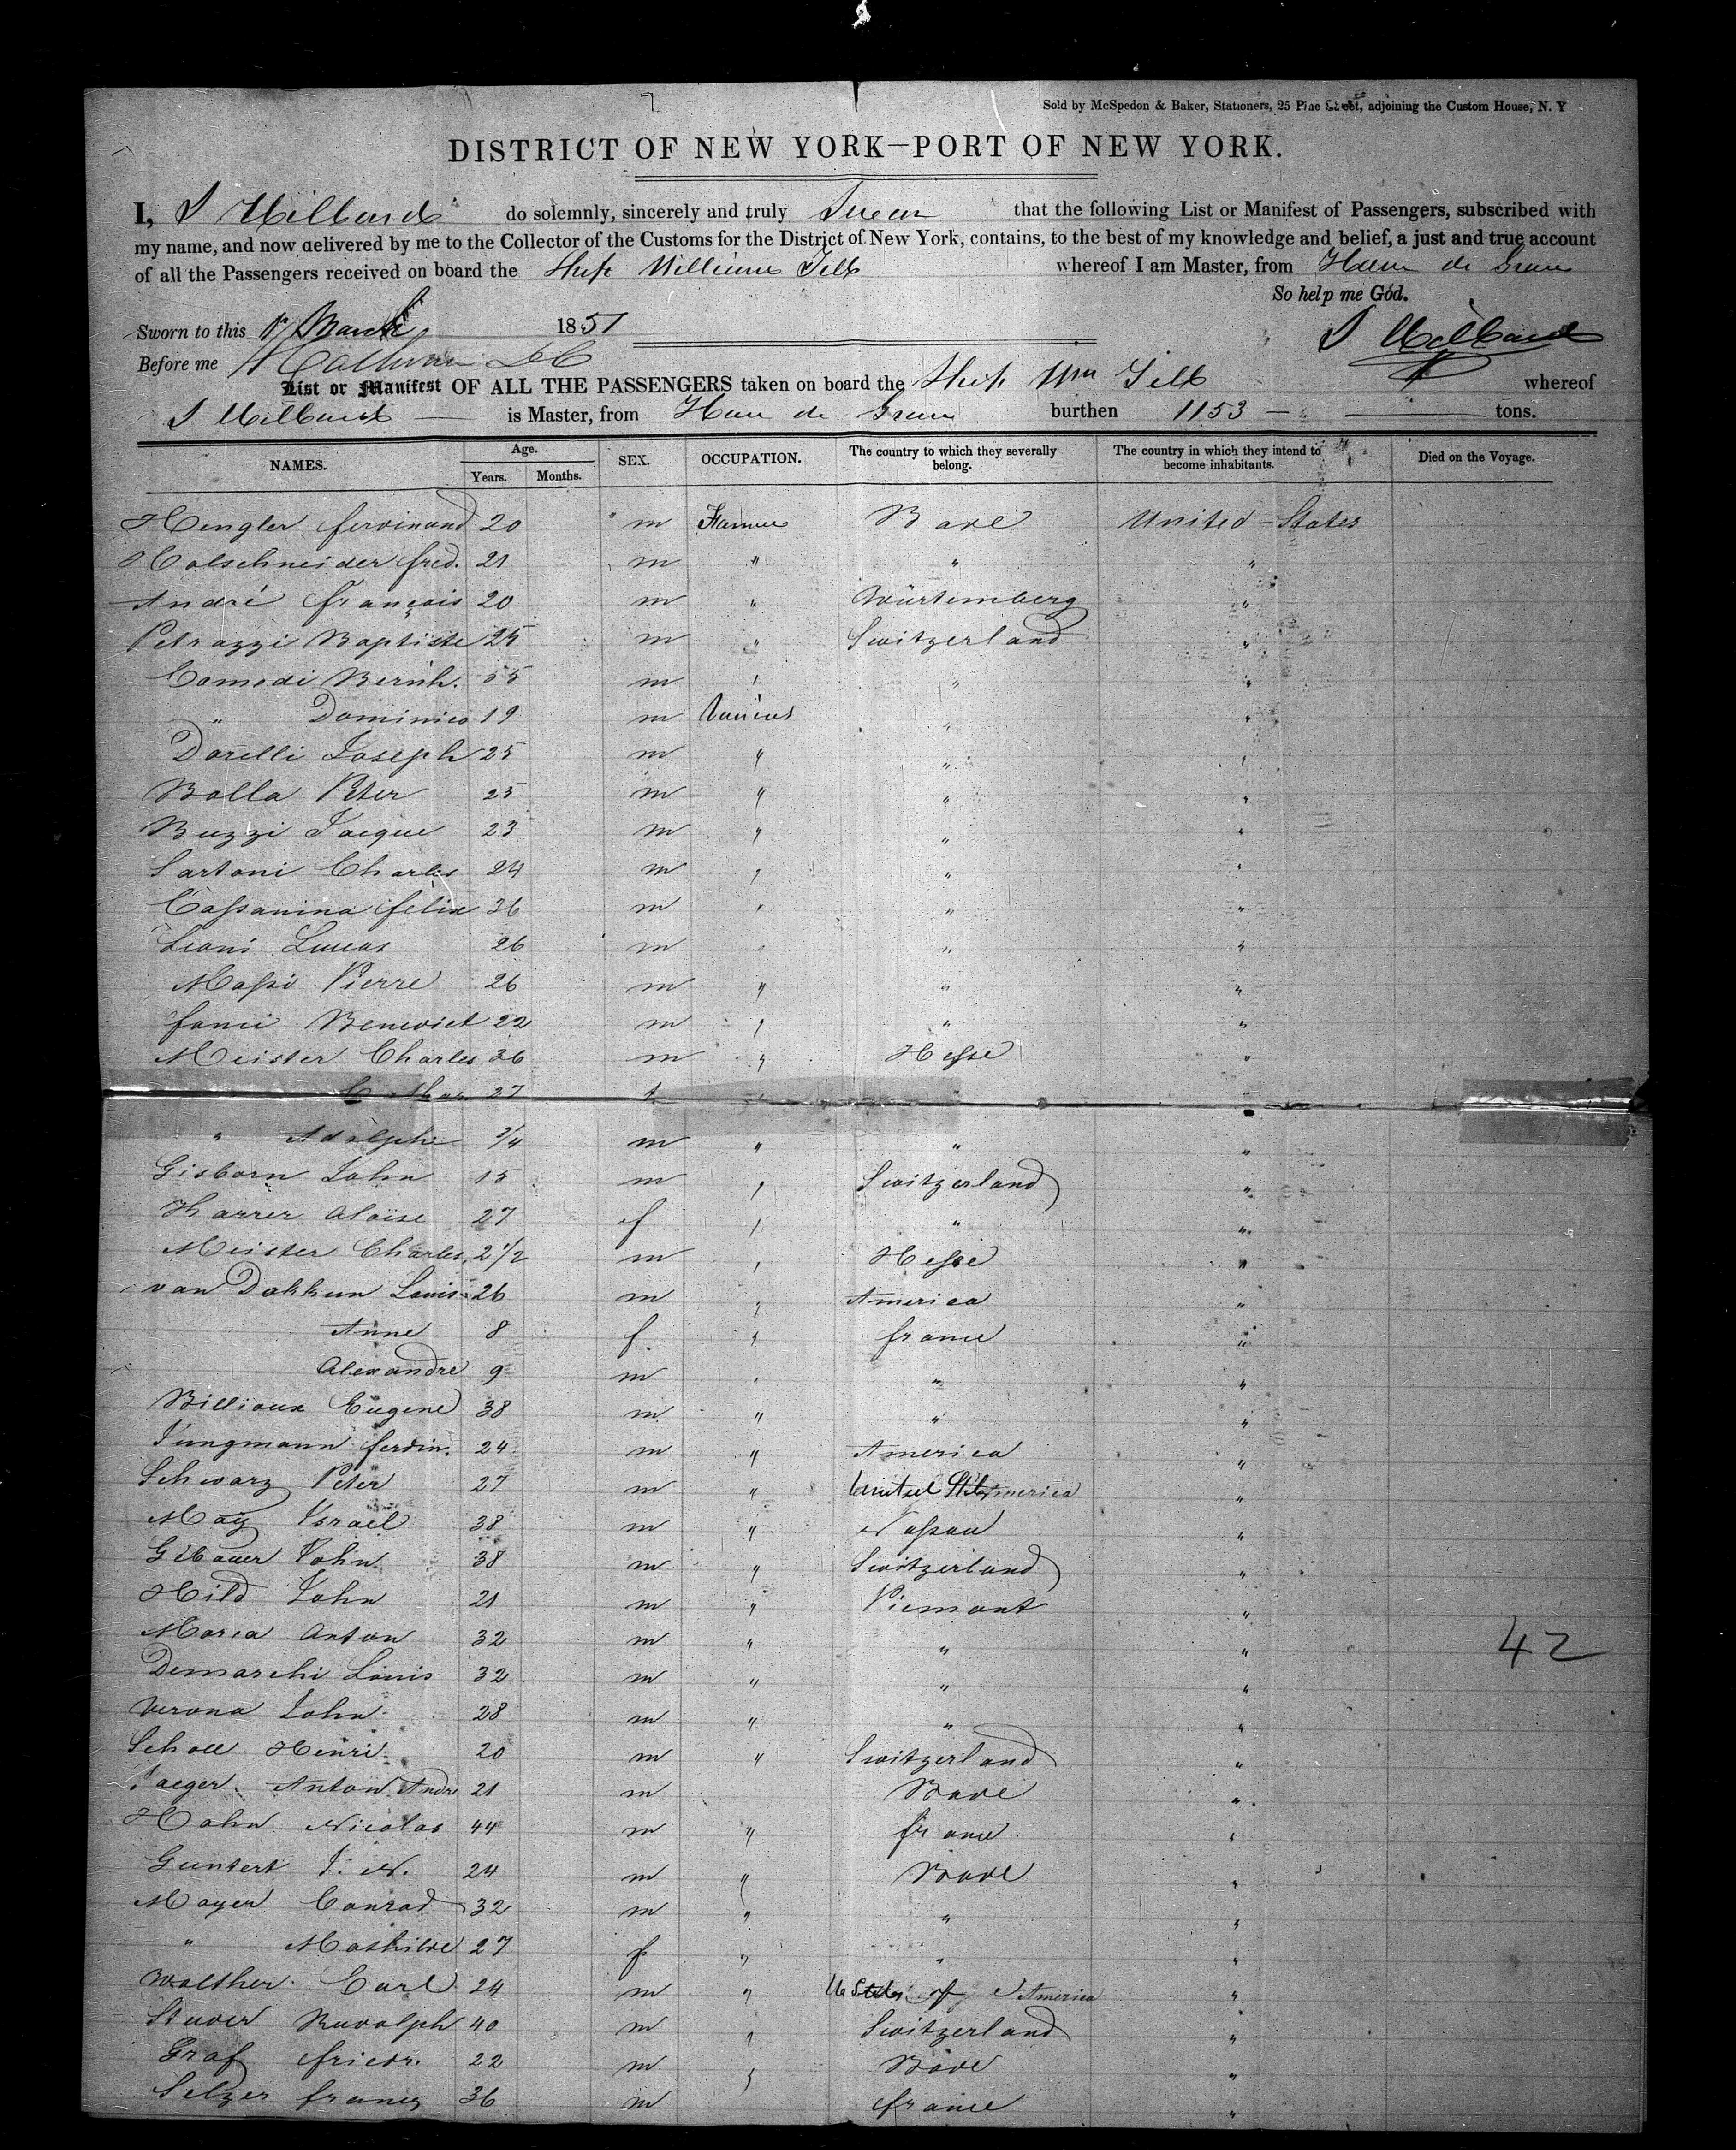 Sold by McSpedon & Baker, Stationers, 25 Pine Street, adjoining the Custom House, N. Y
DISTRICT OF NEW YORK—PORT OF NEW YORK.
I, do solemnly, sincerely and truly Swear that the following List or Manifest of Passengers, subscribed with
my name, and now delivered by me to the Collector of the Customs for the District of New York, contains, to the best of my knowledge and belief, a just and true account
of all the Passengers received on board the Ship William Tell whereof I am Master, from Havre de Grace
So help me God.
Sworn to this March 1851
Before me
List or Manifest OF ALL THE PASSENGERS taken on board the Ship Wm Tell whereof
is Master, from Havre de Grace burthen 1153 tons.
NAMES. Age. Years. Months. SEX. OCCUPATION. The country to which they severally belong. The country in which they intend to become inhabitants. Died on the Voyage.
Hengler ferdinand 20 m Farmer Bade United States
Holschneider fred. 21 m " " "
André françois 20 m " Würtemberg "
Petrazzi Baptiste 25 m " Switzerland "
Comodi Bernh. m " " "
" Dominico 19 m Various " "
Dorelli Joseph 25 m " " "
Bolla Peter 25 m " " "
Buzzi Jacque 23 m " " "
Sartoni Charles 24 m " " "
Cassanina felix 36 m " " "
Leoni Lucas 26 m " " "
Massi Pierre 26 m " " "
fanci Benedict 22 m " " "
Meister Charles 36 m " Hesse "
27 f " " "
" Adolphe 3/4 m " " "
Gisborn John 15 m " Switzerland "
Harrer Aloise 27 f " " "
Meister Charles 2 1/2 m " Hesse "
van Dokkun Louis 26 m " America "
Anne 8 f " france "
Alexandre 9 m " " "
Billioux Eugene 38 m " " "
Jungmann ferdin. 24 m " America "
Schwarz Peter 27 m " United America "
May Israel 38 m " Nassau "
Gebauer John 38 m " Switzerland "
Hild John 21 m " Piemont "
Morea Anton 32 m " " " 42
Demarchi Louis 32 m " " "
Verona John 28 m " " "
Scholl Henri 20 m " Switzerland "
Jaeger Anton Andre 21 m Bade "
Hahn Nicolas 44 m " france "
Guntert J. N. 24 m " Bade "
Mayer Conrad 32 m " " "
" Mathilde 27 f " " "
Walther Carl 24 m " U States of America "
Studer Rudolph 40 m " Switzerland "
Graf friedr. 22 m " Bade "
Selzer franz 36 m france "